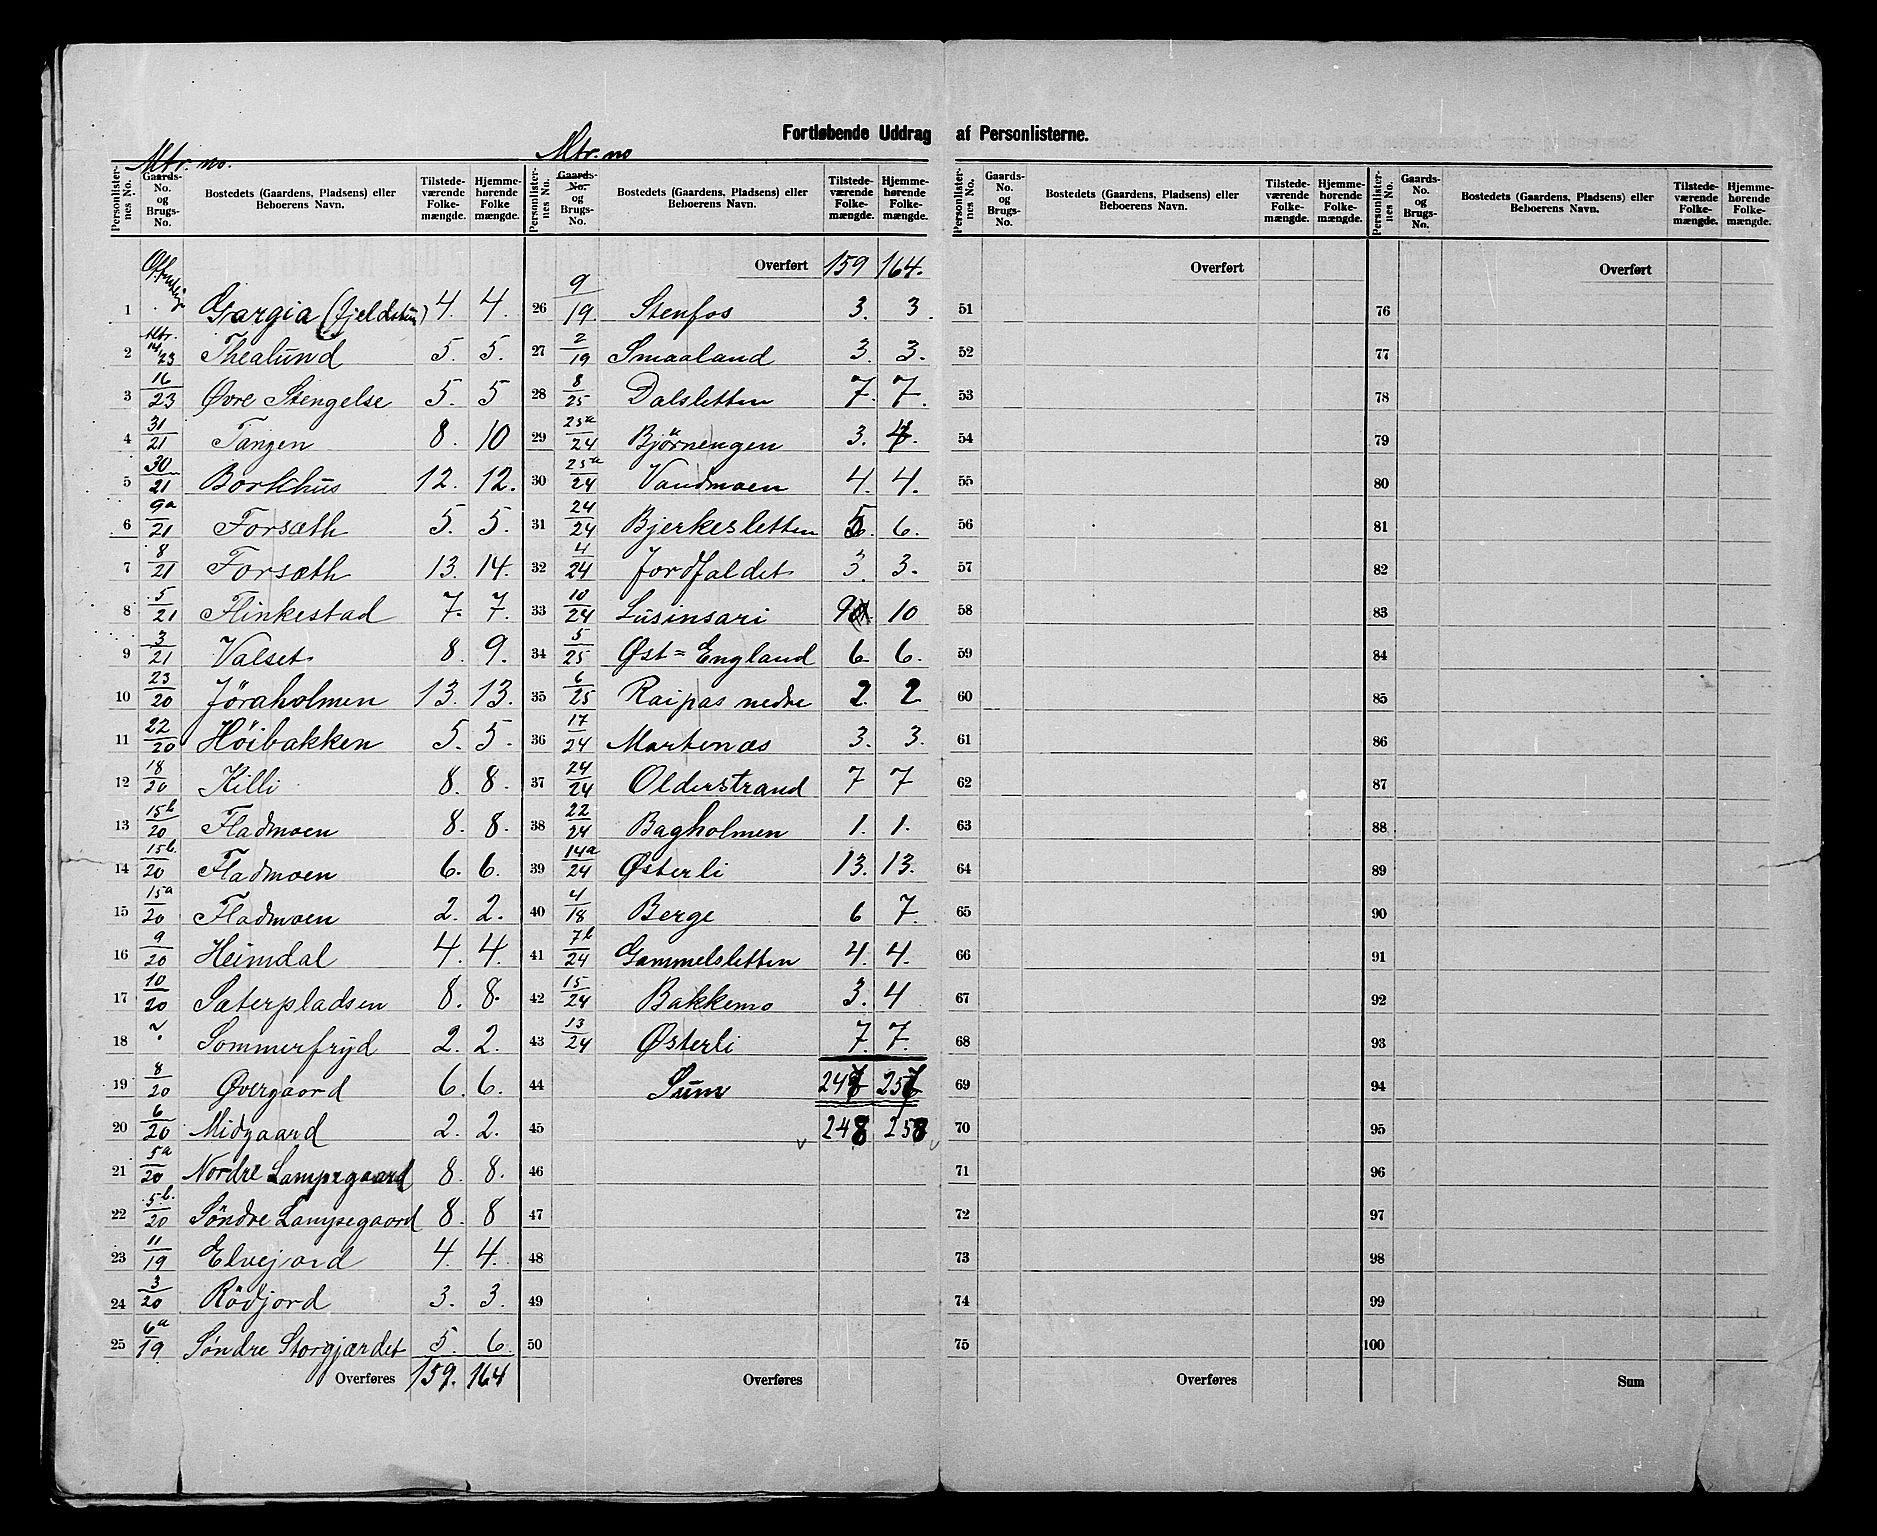 Fortløbende Uddrag af Personlisterne.
Mtr. no. Mtr. no
Personlister-nes No. Gaards-No. og Brugs-No. Bostedets (Gaardens, Pladsens) eller Beboerens Navn. Tilstede-værende Folke-mængde. Hjemme-hørende Folke-mængde.
1 Gargia (fjeldstue) 4. 4.
2 Mtr. 14/23 Thealund 5. 5.
3 16/23 Øvre Stengelse 5. 5
4 31/21 Tangen 8. 10
5 30/21 Borkhus 12. 12.
6 9a/21 Forsæth 5. 5.
7 8/21 Forsæth 13. 14.
8 5/21 Flinkestad 7. 7.
9 3/21 Valset 8. 9.
10 23/20 Jöraholmen 13. 13.
11 22/20 Höibakken 5. 5.
12 18/20 Killi 8. 8.
13 15b/20 Fladmoen 8. 8.
14 15b/20 Fladmoen 6. 6.
15 15a/20 Fladmoen 2. 2.
16 9/20 Heimdal 4. 4.
17 10/20 Sæterpladsen 8. 8.
18 ? Sommerfryd 2. 2.
19 8/20 Øvergaard 6. 6.
20 6/20 Midgaard 2. 2.
21 5a/20 Nordre Lampegaard 8. 8.
22 5b/20 Söndre Lampegaard 8. 8
23 11/19 Elvejord 4. 4.
24 3/20 Rödjord 3. 3.
25 6a/19 Söndre Storgjærdet 5. 6.
Overføres 159. 164
Personlister-nes No. Gaards-No. og Brugs-No. Bostedets (Gaardens, Pladsens) eller Beboerens Navn. Tilstede-værende Folke-mængde. Hjemme-hørende Folke-mængde.
Overført 159 164.
26 9/19. Stenfos 3. 3.
27 2/19 Smaaland 3. 3.
28 8/25 Dalsletten 7. 7.
29 24 Bjørnengen 3. 4.
30 24 Vandmoen 4. 4.
31 24/24 Bjerkesletten 5. 6.
32 4/24 Jordfaldet 3. 3.
33 10/24 Lusinsari 9 10
34 5/25 Øst=England 6. 6.
35 6/25 Raipas nedre 2. 2
36 17/24 Martenæs 3. 3.
37 24/24 Olderstrand 7 7
38 22/24 Bagholmen 1. 1.
39 14a/24 Østerli 13. 13.
40 4/18 Berge 6 7.
41 7b/24 Gammelsletten 4. 4.
42 15/24 Bakkemo 3. 4
43 13/24 Østerli 7. 7.
44 Sum
45 248 258
46
47
48
49
50
Overføres
Personlister-nes No. Gaards-No. og Brugs-No. Bostedets (Gaardens, Pladsens) eller Beboerens Navn. Tilstede-værende Folke-mængde. Hjemme-hørende Folke-mængde.
Overført
51
52
53
54
55
56
57
58
59
60
61
62
63
64
65
66
67
68
69
70
71
72
73
74
75
Overføres
Personlister-nes No. Gaards-No. og Brugs-No. Bostedets (Gaardens, Pladsens) eller Beboerens Navn. Tilstede-værende Folke-mængde. Hjemme-hørende Folke-mængde.
Overført
76
77
78
79
80
81
82
83
84
85
86
87
88
89
90
91
92
93
94
95
96
97
98
99
100
Sum